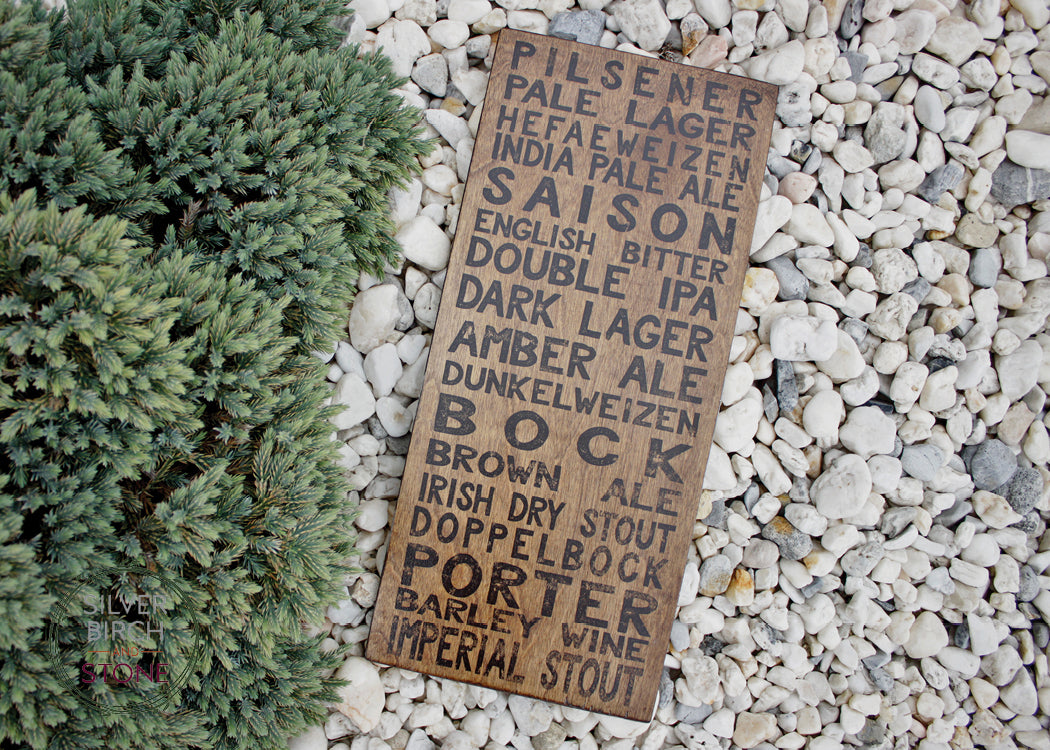 PILSENER
PALE LAGER
HEFAEWEIZEN
INDIA PALE ALE
SAISON
ENGLISH BITTER
DOUBLE IPA
DARK LAGER
AMBER ALE
DUNKELWEIZEN
BOCK
BROWN ALE
IRISH DRY STOUT
DOPPELBOCK
PORTER
BARLEY WINE
IMPERIAL STOUT
SILVER
BIRCH
AND
STONE